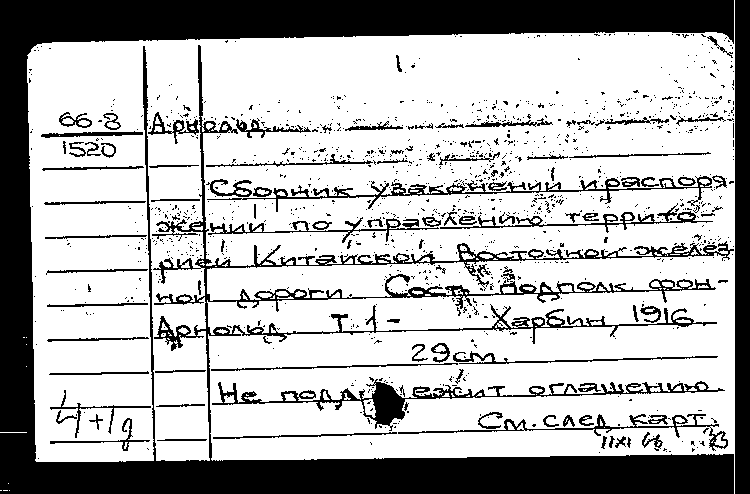 1.
66-8 Арнольд
1520
Сборник узаконений и распоря-
жений по управлению террито-
рией Китайской Восточной желез-
ной дороги. Сост. подполк. фон-
Арнольд. Т. 1- Харбин, 1916.
29см.
Не подл ежит оглашению.
4+1д
См. след. карт.
11 XI 66